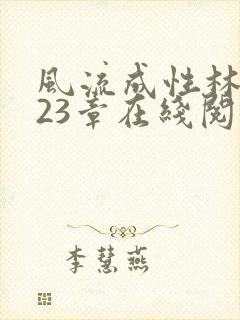 風流成性林
23章在綫閱
李慧燕